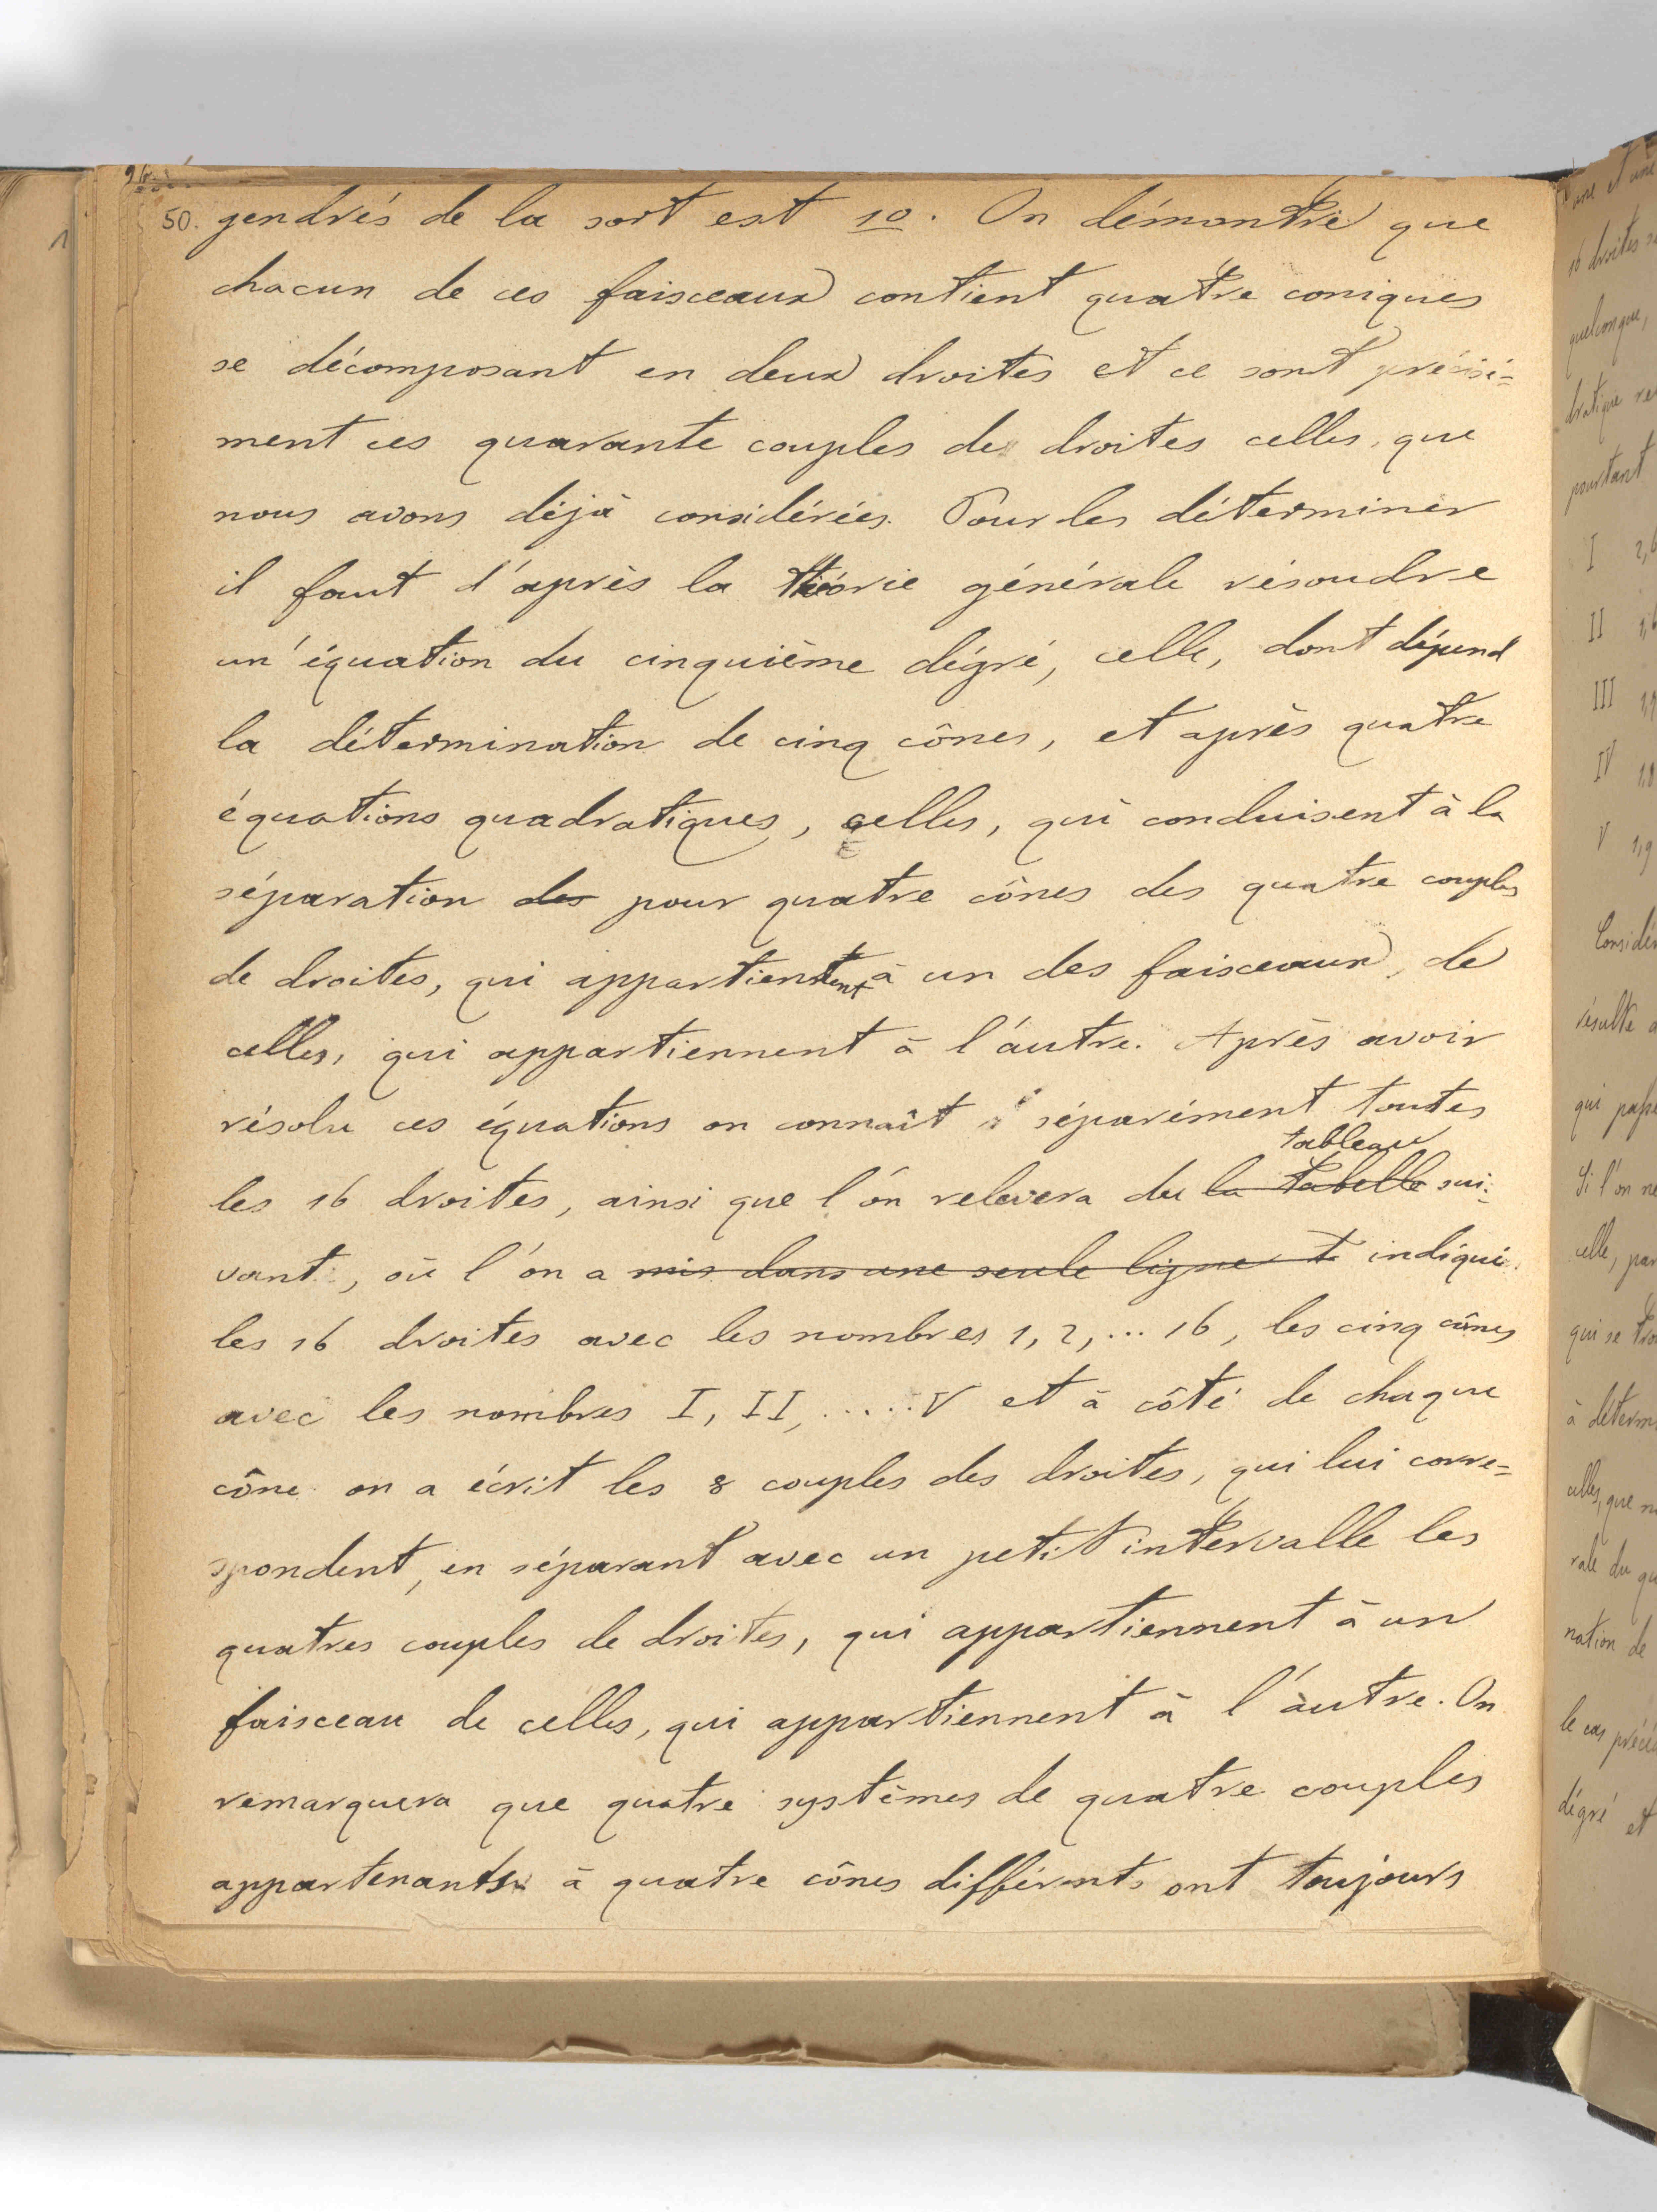 50. gendrés de la sort est 10. On démontre que
chacun de ces faisceaux contient quatre coniques
se décomposant en deux droites et ce sont précisé=
ment ces quarante couples de droites celles, que
nous avons déjà considérées. Pour les déterminer
il faut d'après la théorie générale résoudre
un'équation du cinquième dégré, celle, dont dépend
la détermination de cinq cônes, et après quatre
équations quadratiques, celles, qui conduisent à la
séparation des pour quatre cônes des quatre couples
de droites, qui appartiennent à un des faisceaux, de
celles, qui appartiennent à l'autre. Après avoir
résolu ces équations on connaît séparément toutes
tableau
les 16 droites, ainsi que l'on relevera du la tabelle sui=
vant, où l'on a mis dans une seule ligne t indiqué
les 16 droites avec les nombres 1, 2, ... 16, les cinq cônes
avec les nombres I, II, ..... V et à côté de chaque
cône on a écrit les 8 couples des droites, qui lui corre=
spondent, en séparant avec un petit intervalle les
quatres couples de droites, qui appartiennent à un
faisceau de celles, qui appartiennent à l'autre. On
remarquera que quatre systèmes de quatre couples
appartenants à quatre cônes différents ont toujours
16 droites
quelconque,
pourtant
I
II
III
IV
V 1,9
résulte
Si l'on
celle, par
qui se
à
celles, que
nation de
le cas
dégré et